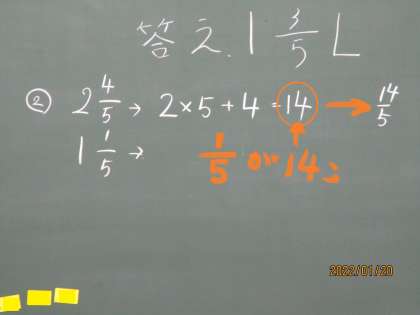 答え. 1 3/5 L
② 2 4/5 → 2×5+4=14 → 14/5
1 1/5 → 1/5 が 14こ
2022/01/20